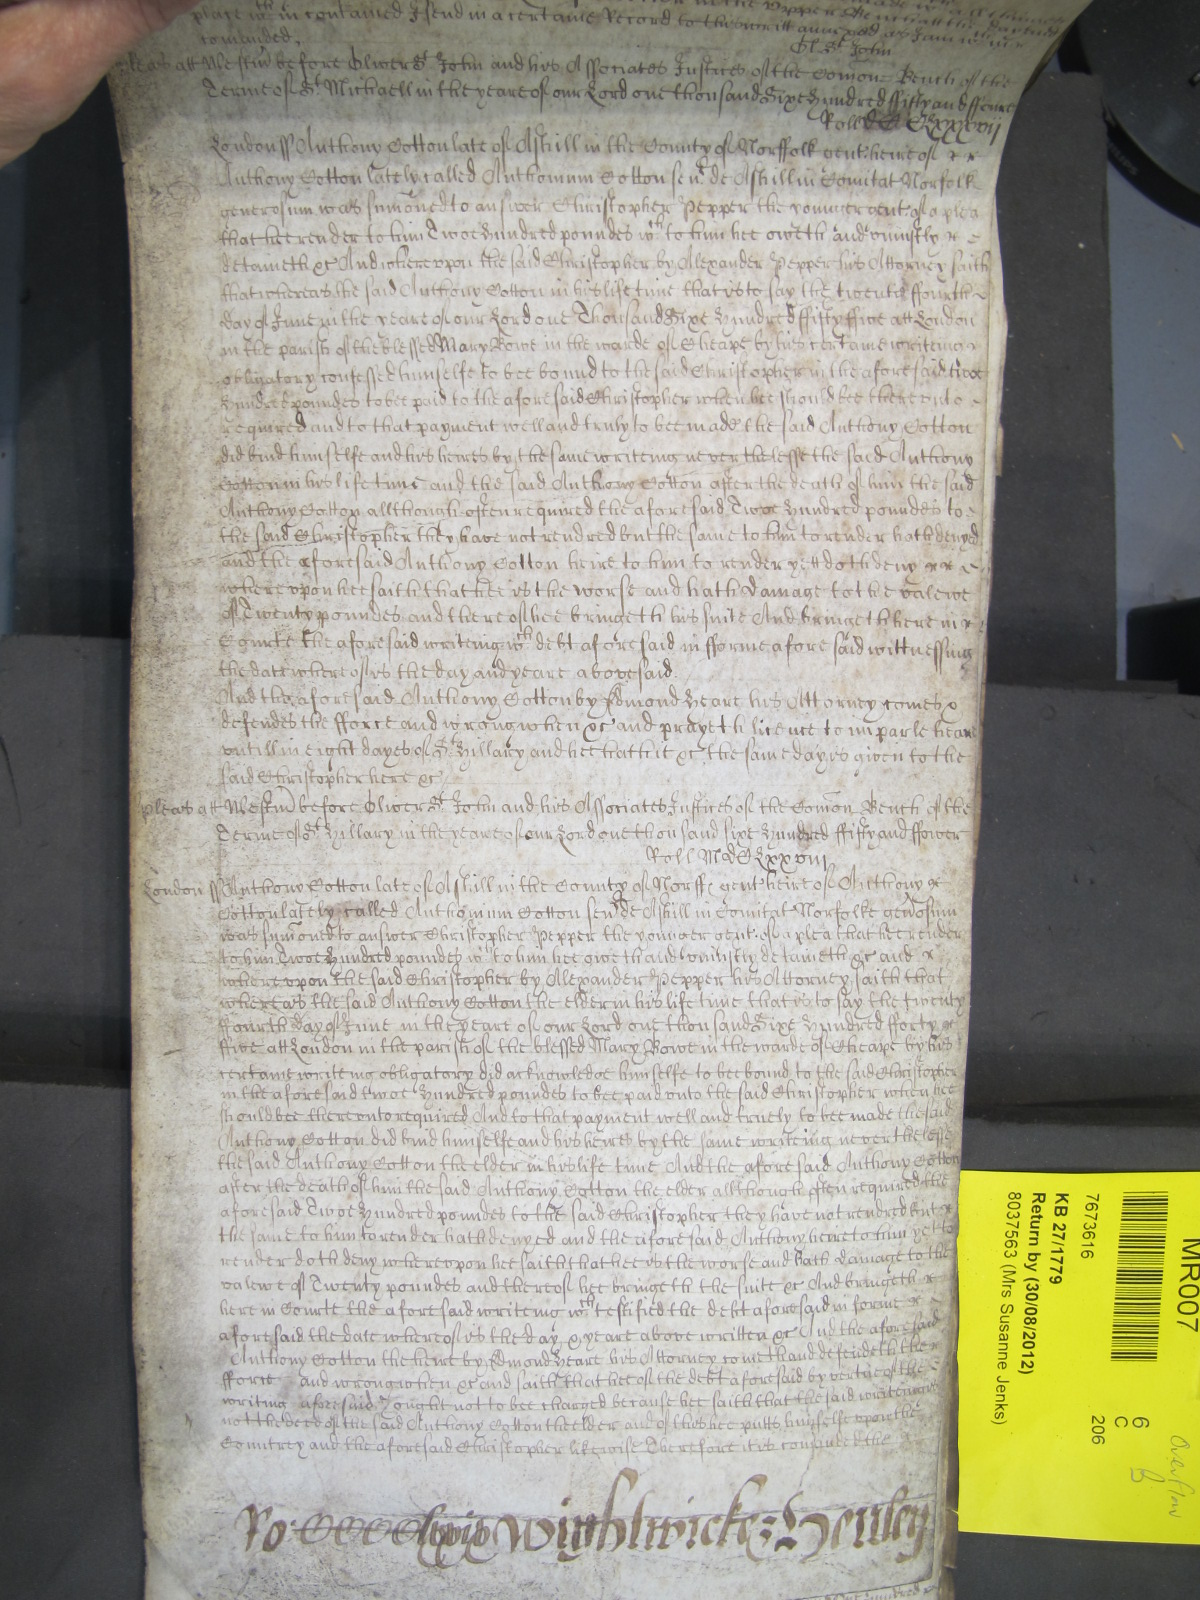 place wch in contained I send in a certaine Record to the writt annexed as I am
comanded.
Ol. St John
Pleas att Westm before Oliver St John and his Associates Justices of the Comone Bench of the
Terme of St Michaell in the yeare of our Lord one thousand Sixe Hundred fifty and
Roll
London ss Anthony Cotton late of Ashill in the County of Norffolk gent heire of
Anthony Cotton lately called Anthonium Cotton sen de Ashill in Comitat Norfolk
generosum was sumoned to answer Christopher Pepper the younger gent of a plea
that hee render to him Twoe Hundred poundes wch to him hee oweth and uniustly
detaineth &c And whereupon the said Christopher by Alexander Pepper his Attorney saith
that whereas the said Anthony Cotton in his life time that is to say the twenty ffourth
day of June in the yeare of our Lord one Thousand Sixe Hundred ffifty ffive att London
in the parish of the blessed Mary Bowe in the warde of Cheape by his certaine writeing
obligatory confessed himselfe to bee bound to the said Christopher in the aforesaid twoe
Hundred poundes to bee paid to the aforesaid Christopher when hee should bee thereunto
required and to that payment well and truly to bee made the said Anthony Cotton
did bind himselfe and his heires by the same writeing neverthelesse the said Anthony
Cotton in his life time and the said Anthony Cotton after the death of him the said
Anthony Cotton allthough often required the aforesaid Twoe Hundred poundes to
the said Christopher they have not rendred but the same to him to render hath denyed
and the aforesaid Anthony Cotton heire to him to render yett doth deny
whereupon hee saith that hee is the worse and hath damage to the valewe
of Twenty poundes and thereof hee bringeth his suite And bringeth here in
Courte the aforesaid writeing wch debt aforesaid in fforme aforesaid wittnessing
the date whereof is the day and yeare abovesaid.
And the aforesaid Anthony Cotton by Edmond Heare his Attorney comes &
defendes the fforce and wrong when &c and prayeth licence to imparle heare
untill in eight dayes of St Hillary and hee hath it &c the same day is given to the
said Christopher here &c
Pleas at Westm before Oliver St John and his Associates Justices of the Comon Bench of the
Terme of St Hillary in the yeare of our Lord one thousand Sixe Hundred ffifty and ffower
Roll
London ss Anthony Cotton late of Ashill in the County of Norff gent heire of Anthony
Cotton lately called Anthonium Cotton sen de Ashill in Comitat Norfolke genosum
was sumoned to answer Christopher Pepper the younger gent of a plea that hee render
to him Twoe Hundred poundes wch to him hee oweth and uniustly detaineth &c and
whereupon the said Christopher by Alexander Pepper his Attorney saith that
whereas the said Anthony Cotton the elder in his life time that is to say the twenty
ffourth day of June in the yeare of our Lord one thousand Sixe Hundred fforty
ffive att London in the parish of the blessed Mary Bowe in the warde of Cheape by his
certaine writeing obligatory did acknowledge himselfe to bee bound to the said Christopher
in the aforesaid twoe Hundred poundes to bee paid unto the said Christopher when hee
should bee thereunto required And to that payment well and truely to bee made the said
Anthony Cotton did bind himselfe and his heires by the same writeing neverthelesse
the said Anthony Cotton the elder in his life time And the aforesaid Anthony Cotton
after the death of him the said Anthony Cotton the elder allthough often required the
aforesaid Twoe Hundred poundes to the said Christopher they have not rendred but
the same to him to render hath denyed and the aforesaid Anthony heire to him yet to
render doth deny whereupon hee saith that hee is the worse and hath damage to the
valewe of Twenty poundes and thereof hee bringeth the suite &c And bringeth
here in Courte the aforesaid writeing wch testified the debt aforesaid in forme
aforesaid the date whereof is the day & yeare above written &c And the aforesaid
Anthony Cotton the heire by Edmond Heare his Attorney cometh and defendeth the
fforce and wrong when &c and saith that hee of the debt aforesaid by vertue of the
writing aforesaid ought not to bee charged because hee saith that the said writeing
not the deed of the said Anthony Cotton the elder and of this hee putts himselfe upon the
Countrey and the aforesaid Christopher likewise Therefore it is comanded the
Ro Wightwicke: Henley
MR007
6
C
206
7673616
KB 27/1779
Return by (30/08/2012)
8037563 (Mrs Susanne Jenks)
Overflow
B